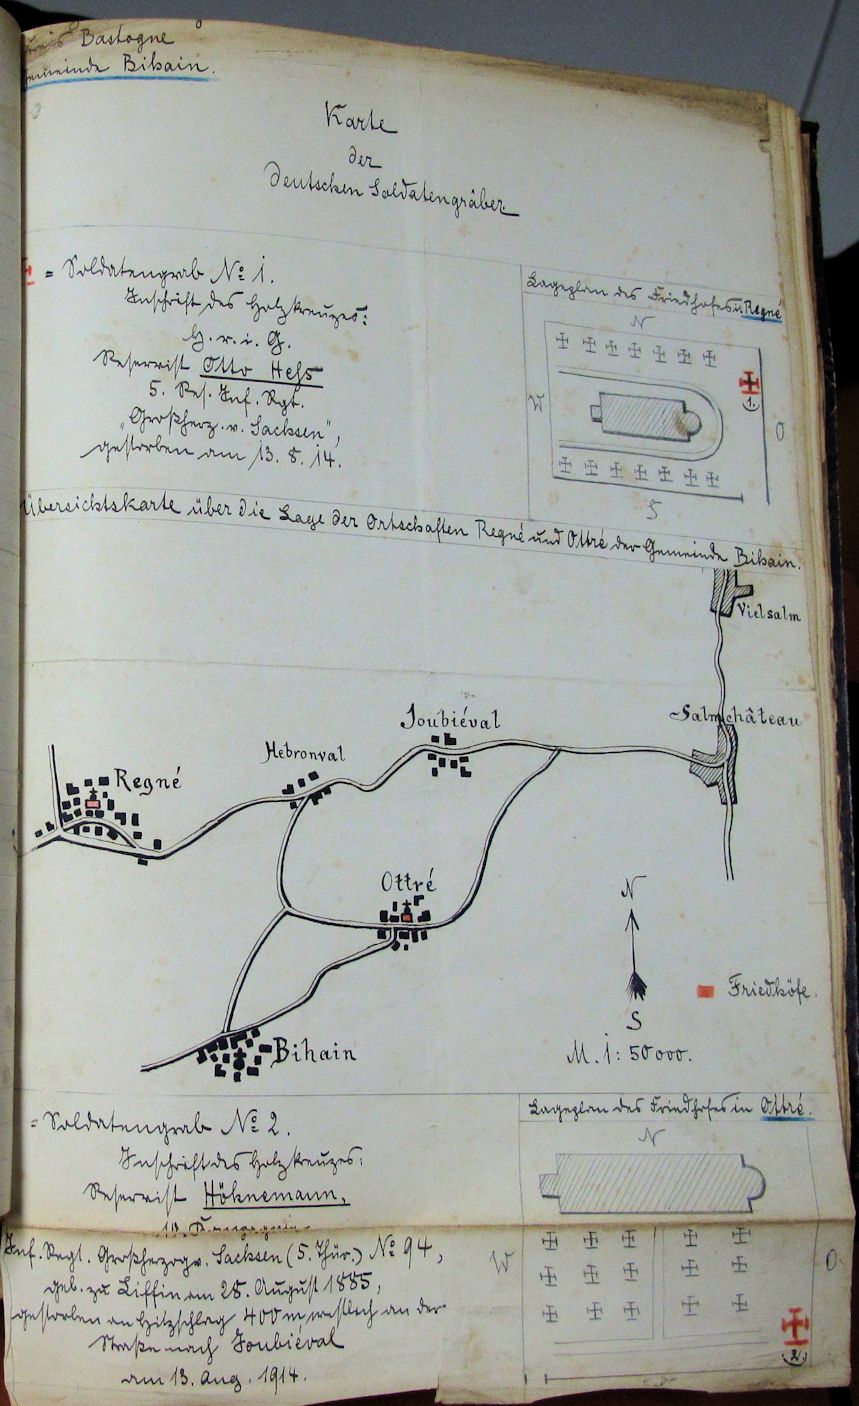 Kreis Bastogne
Gemeinde Bihain.
Karte
der
deutschen Soldatengräber.
= Soldatengrab No 1.
Inschrift des Holzkreuzes:
H. r. i. G.
Reservist Otto Heß
5. Res. Inf. Rgt.
„Großherz. v. Sachsen",
gestorben am 13. 8. 14.
Lageplan des Friedhofes i. Regné
N
W
1.
O
S
Übersichtskarte über die Lage der Ortschaften Regné und Ottré der Gemeinde Bihain.
Vielsalm
Salmchâteau
Joubiéval
Hebronval
Regné
Ottré
N
Friedhöfe.
S
Bihain
M. 1:50000.
= Soldatengrab No 2.
Inschrift des Holzkreuzes:
Reservist Höhnemann,
Inf. Regt. Großherzog v. Sachsen (5. Thür.) No 94,
geb. zu Liffin am 28. August 1885,
gestorben an Hitzschlag 400 m westlich an der
Straße nach Joubiéval
am 13. Aug. 1914.
Lageplan des Friedhofes in Ottré.
N
W
O.
2.